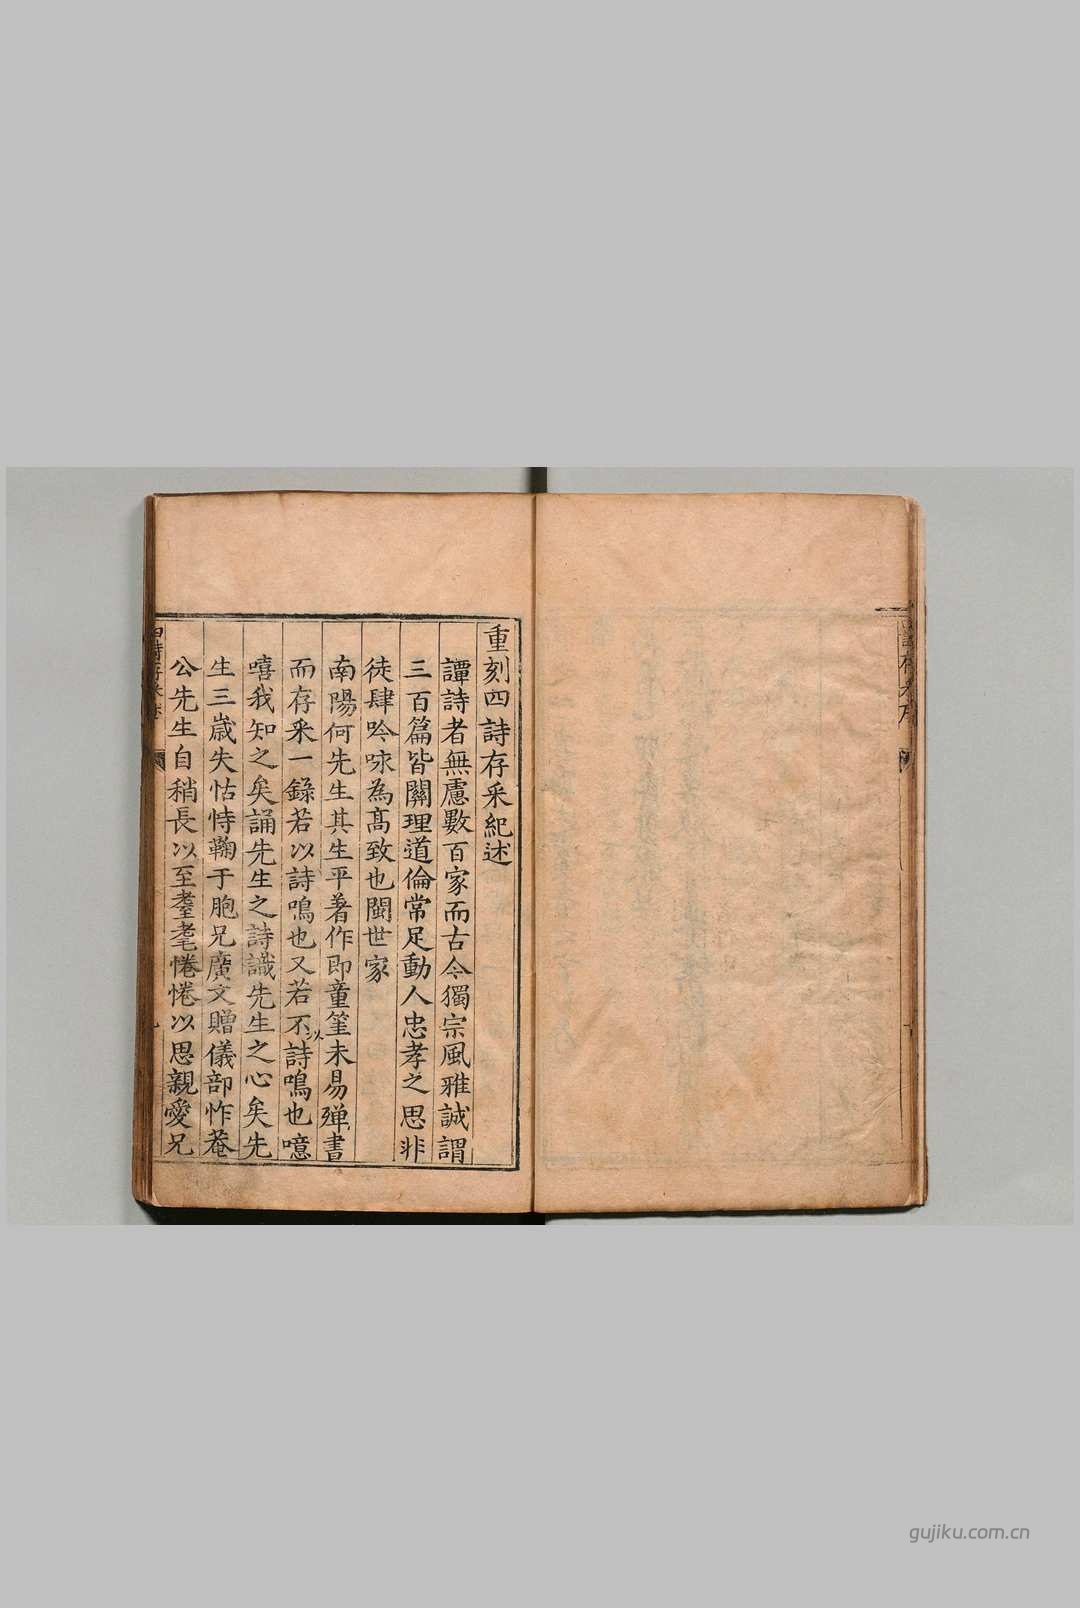 重刻四詩存采紀述
譚詩者無慮數百家而古今獨宗風雅誠謂
三百篇皆關理道倫常足動人忠孝之思非
徒肆吟咏為髙致也閩世家
南陽何先生其生平著作即童篁未易殫書
而存采一錄若以詩鳴也又若不以詩鳴也噫
嘻我知之矣誦先生之詩識先生之心矣先
生三歲失怙恃鞠于胞兄廣文贈儀部怍菴
公先生自稍長以至耋耄惓惓以思親愛兄
四詩存采
gujiku.com.cn